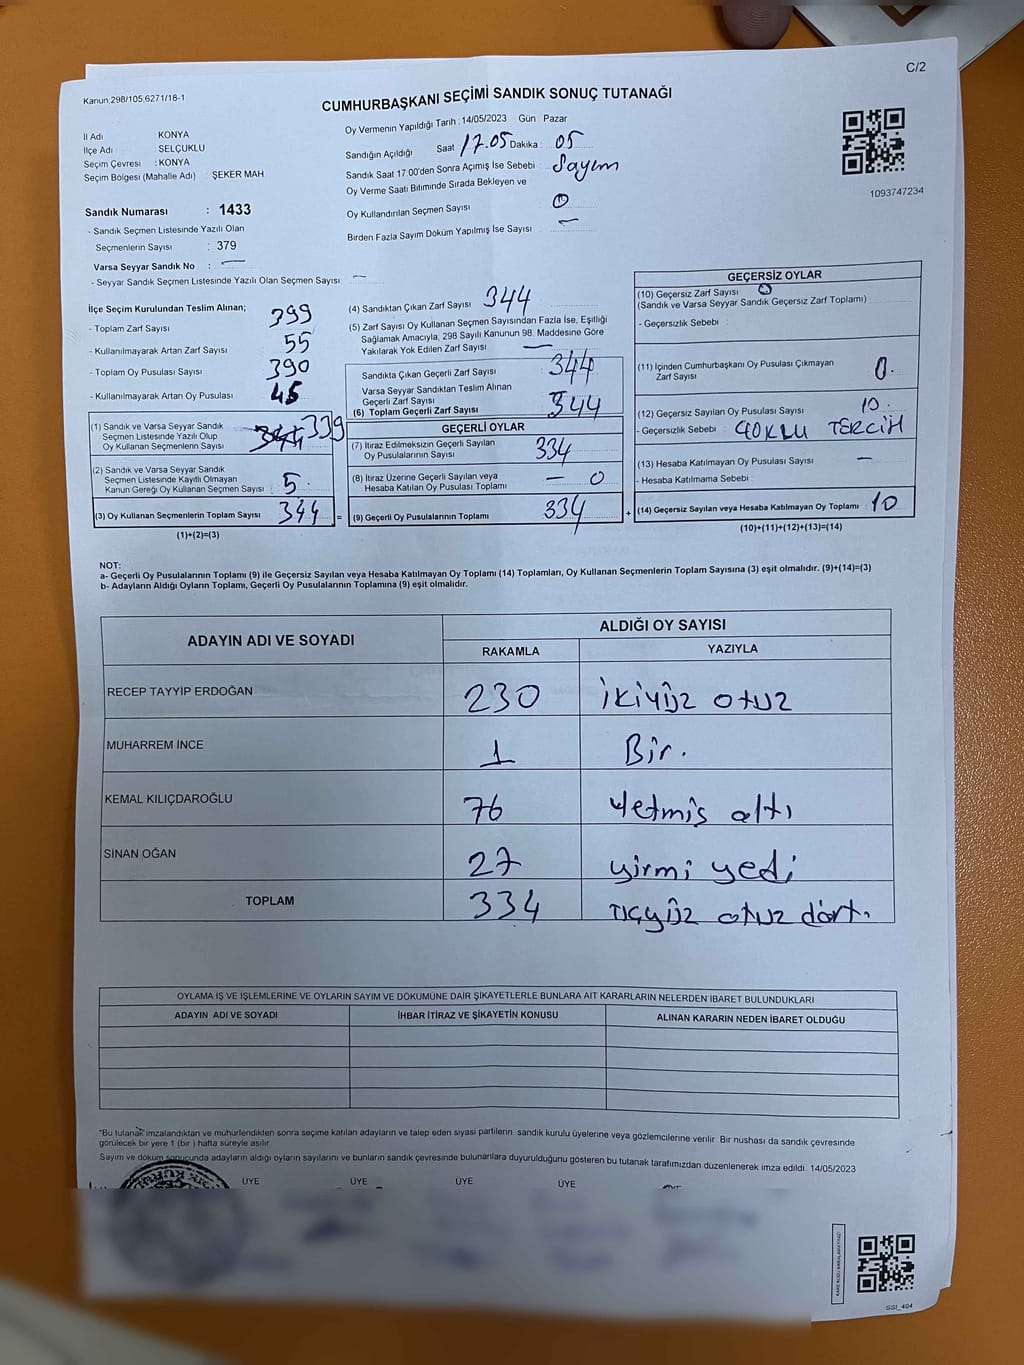 C/2
Kanun.298/105;6271/18-1
CUMHURBAŞKANI SEÇİMİ SANDIK SONUÇ TUTANAĞI
İl Adı KONYA
İlçe Adı : SELÇUKLU
Seçim Çevresi : KONYA
Seçim Bölgesi (Mahalle Adı) ŞEKER MAH
Sandık Numarası : 1433
- Sandık Seçmen Listesinde Yazılı Olan
Seçmenlerin Sayısı : 379
Varsa Seyyar Sandık No : —
- Seyyar Sandık Seçmen Listesinde Yazılı Olan Seçmen Sayısı —
Oy Vermenin Yapıldığı Tarih : 14/05/2023 Gün Pazar
Sandığın Açıldığı Saat 17.05 Dakika : 05
Sandık Saat 17 00'den Sonra Açımış İse Sebebi : Sayım
Oy Verme Saati Bitiminde Sırada Bekleyen ve
Oy Kullandırılan Seçmen Sayısı 0
Birden Fazla Sayım Döküm Yapılmış İse Sayısı : —
1093747234
İlçe Seçim Kurulundan Teslim Alınan;
- Toplam Zarf Sayısı 399
- Kullanılmayarak Artan Zarf Sayısı 55
- Toplam Oy Pusulası Sayısı 390
- Kullanılmayarak Artan Oy Pusulası 45
(1) Sandık ve Varsa Seyyar Sandık
Seçmen Listesinde Yazılı Olup
Oy Kullanan Seçmenlerin Sayısı 339
(2) Sandık ve Varsa Seyyar Sandık
Seçmen Listesinde Kayıtlı Olmayan
Kanun Gereği Oy Kullanan Seçmen Sayısı : 5
(3) Oy Kullanan Seçmenlerin Toplam Sayısı : 344 =
(1)+(2)=(3)
(4) Sandıktan Çıkan Zarf Sayısı 344
(5) Zarf Sayısı Oy Kullanan Seçmen Sayısından Fazla İse, Eşitliği
Sağlamak Amacıyla, 298 Sayılı Kanunun 98. Maddesine Göre
Yakılarak Yok Edilen Zarf Sayısı —
Sandıkta Çıkan Geçerli Zarf Sayısı 344
Varsa Seyyar Sandıktan Teslim Alınan
Geçerli Zarf Sayısı
(6) Toplam Geçerli Zarf Sayısı 344
GEÇERLİ OYLAR
(7) İtiraz Edilmeksizin Geçerli Sayılan
Oy Pusulalarının Sayısı 334
(8) İtiraz Üzerine Geçerli Sayılan veya
Hesaba Katılan Oy Pusulası Toplamı — 0
(9) Geçerli Oy Pusulalarının Toplamı 334 +
GEÇERSİZ OYLAR
(10) Geçersiz Zarf Sayısı 0
(Sandık ve Varsa Seyyar Sandık Geçersiz Zarf Toplamı)
- Geçersizlik Sebebi :
(11) İçinden Cumhurbaşkanı Oy Pusulası Çıkmayan
Zarf Sayısı 0.
(12) Geçersiz Sayılan Oy Pusulası Sayısı 10.
- Geçersizlik Sebebi : ÇOKLU TERCİH
(13) Hesaba Katılmayan Oy Pusulası Sayısı —
- Hesaba Katılmama Sebebi :
(14) Geçersiz Sayılan veya Hesaba Katılmayan Oy Toplamı : 10
(10)+(11)+(12)+(13)=(14)
NOT:
a- Geçerli Oy Pusulalarının Toplamı (9) ile Geçersiz Sayılan veya Hesaba Katılmayan Oy Toplamı (14) Toplamları, Oy Kullanan Seçmenlerin Toplam Sayısına (3) eşit olmalıdır. (9)+(14)=(3)
b- Adayların Aldığı Oyların Toplamı, Geçerli Oy Pusulalarının Toplamına (9) eşit olmalıdır.
ADAYIN ADI VE SOYADI ALDIĞI OY SAYISI
RAKAMLA YAZIYLA
RECEP TAYYİP ERDOĞAN 230 ikiyüz otuz
MUHARREM İNCE 1 Bir.
KEMAL KILIÇDAROĞLU 76 yetmiş altı
SİNAN OĞAN 27 yirmi yedi
TOPLAM 334 üçyüz otuz dört.
OYLAMA İŞ VE İŞLEMLERİNE VE OYLARIN SAYIM VE DÖKÜMÜNE DAİR ŞİKAYETLERLE BUNLARA AİT KARARLARIN NELERDEN İBARET BULUNDUKLARI
ADAYIN ADI VE SOYADI İHBAR İTİRAZ VE ŞİKAYETİN KONUSU ALINAN KARARIN NEDEN İBARET OLDUĞU
*Bu tutanak imzalandıktan ve mühürlendikten sonra seçime katılan adayların ve talep eden siyasi partilerin sandık kurulu üyelerine veya gözlemcilerine verilir. Bir nüshası da sandık çevresinde
görülecek bir yere 1 (bir ) hafta süreyle asılır.
Sayım ve döküm sonucunda adayların aldığı oyların sayılarını ve bunların sandık çevresinde bulunanlara duyurulduğunu gösteren bu tutanak tarafımızdan düzenlenerek imza edildi. 14/05/2023
ÜYE ÜYE ÜYE ÜYE
SSI_404